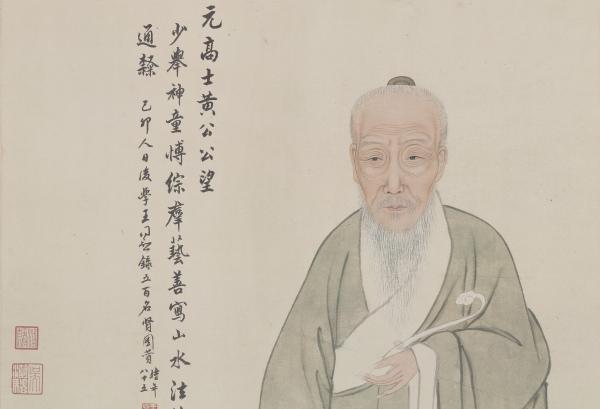 元高士黄公公望
少舉神童博綜羣藝善寫山水法
通隸
己卯人日後學王同愈錄五百名賢圖贊
時年
八十五